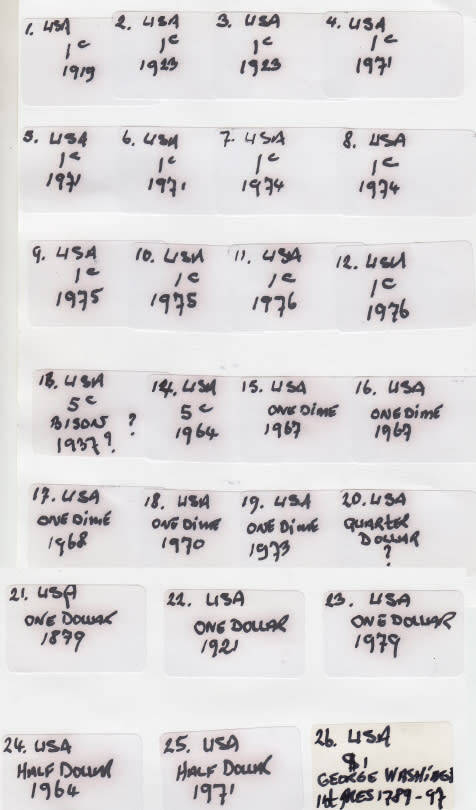 1. USA
1c
1919
2. USA
1c
1923
3. USA
1c
1923
4. USA
1c
1971
5. USA
1c
1971
6. USA
1c
1971
7. USA
1c
1974
8. USA
1c
1974
9. USA
1c
1975
10. USA
1c
1975
11. USA
1c
1976
12. USA
1c
1976
13. USA
5c
BISON ?
1937?
14. USA
5c
1964
15. USA
ONE DIME
1967
16. USA
ONE DIME
1967
17. USA
ONE DIME
1968
18. USA
ONE DIME
1970
19. USA
ONE DIME
1973
20. USA
QUARTER
DOLLAR
?
21. USA
ONE DOLLAR
1879
22. USA
ONE DOLLAR
1921
23. USA
ONE DOLLAR
1979
24. USA
HALF DOLLAR
1964
25. USA
HALF DOLLAR
1971
26. USA
$1
GEORGE
1789-97